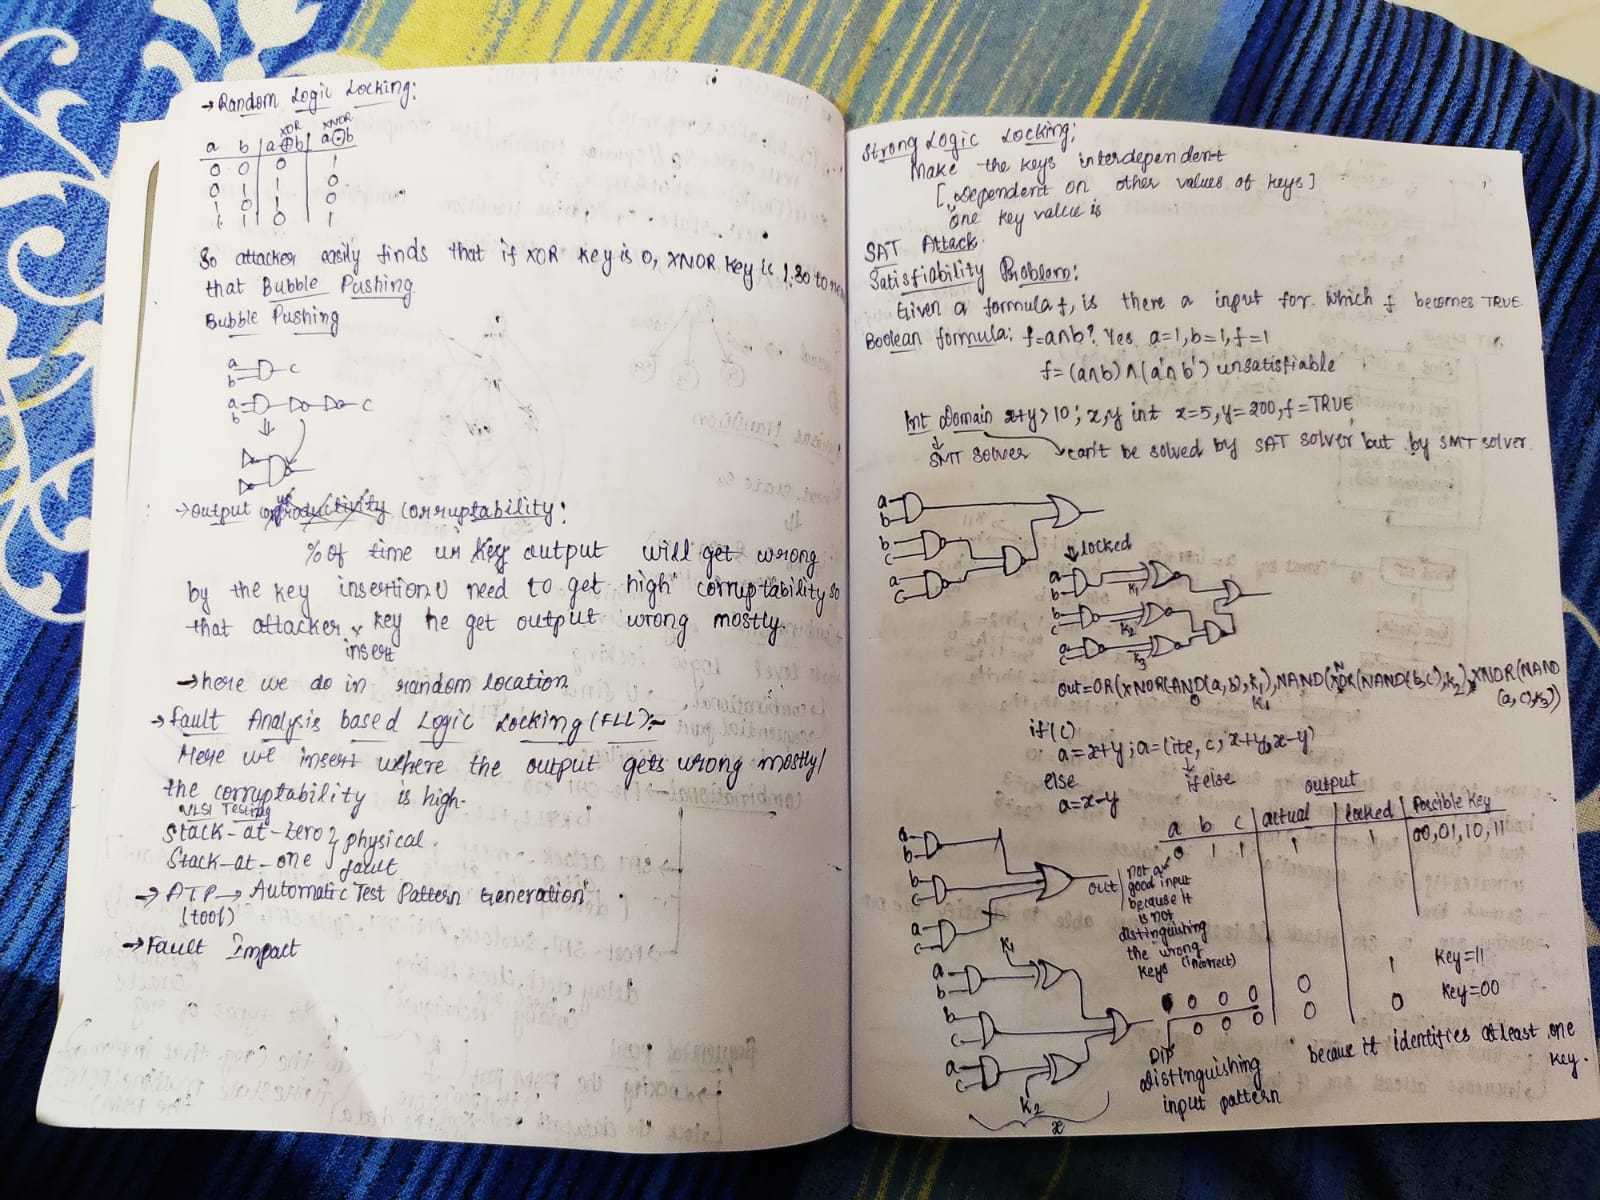 →Random Logic Locking:
XOR XNOR
a b a⊕b a⊙b
0 0 0 1
0 1 1 0
1 0 1 0
1 1 0 1
So attacker easily finds that if XOR key is 0, XNOR key is 1. So to
that Bubble Pushing.
Bubble Pushing
a
b
c
a
b
c
→output corruptability:
% of time ur key output will get wrong
by the key insertion. U need to get high corruptability so
that attacker x key he get output wrong mostly.
insert
→here we do in random location
→Fault Analysis based Logic Locking (FLL):-
Here we insert where the output gets wrong mostly/
the corruptability is high.
VLSI Testing
Stack-at-zero } physical
Stack-at-one } fault
→ ATP → Automatic Test Pattern Generation
(tool)
→Fault Impact
Strong Logic Locking:
Make the keys interdependent
[ Dependent on other values of keys]
one key value is
SAT Attack
Satisfiability Problem:
Given a formula f, is there a input for which f becomes TRUE
Boolean formula: f=a∩b? Yes a=1, b=1, f=1
f=(a∩b)∧(a'∩b') unsatisfiable
Int Domain x+y>10; x,y int x=5, y=200, f=TRUE
SMT solver can't be solved by SAT solver but by SMT solver.
a
b
b
c
a
c
locked
a
b
K1
b
c
K2
a
c
K3
out=OR(XNOR(AND(a,b),k1),NAND(XOR(NAND(b,c),k2),XNOR(NAND
0 K1 (a,c),k3))
if(c)
a=x+y; a=(ite, c, x+y, x-y)
else if else
a=x-y
output
a b c actual locked Possible key
0 1 1 1 1 00,01,10,11
a
b
b
c
a
c
out
not a
good input
because it
is not
distinguishing
the wrong
keys (incorrect)
K1
a
b
b
c
a
c
K2
x
1 Key=11
0 0 0 0 Key=00
0 0 0 0 0
DIP
Distinguishing
input pattern
because it identifies atleast one
key.